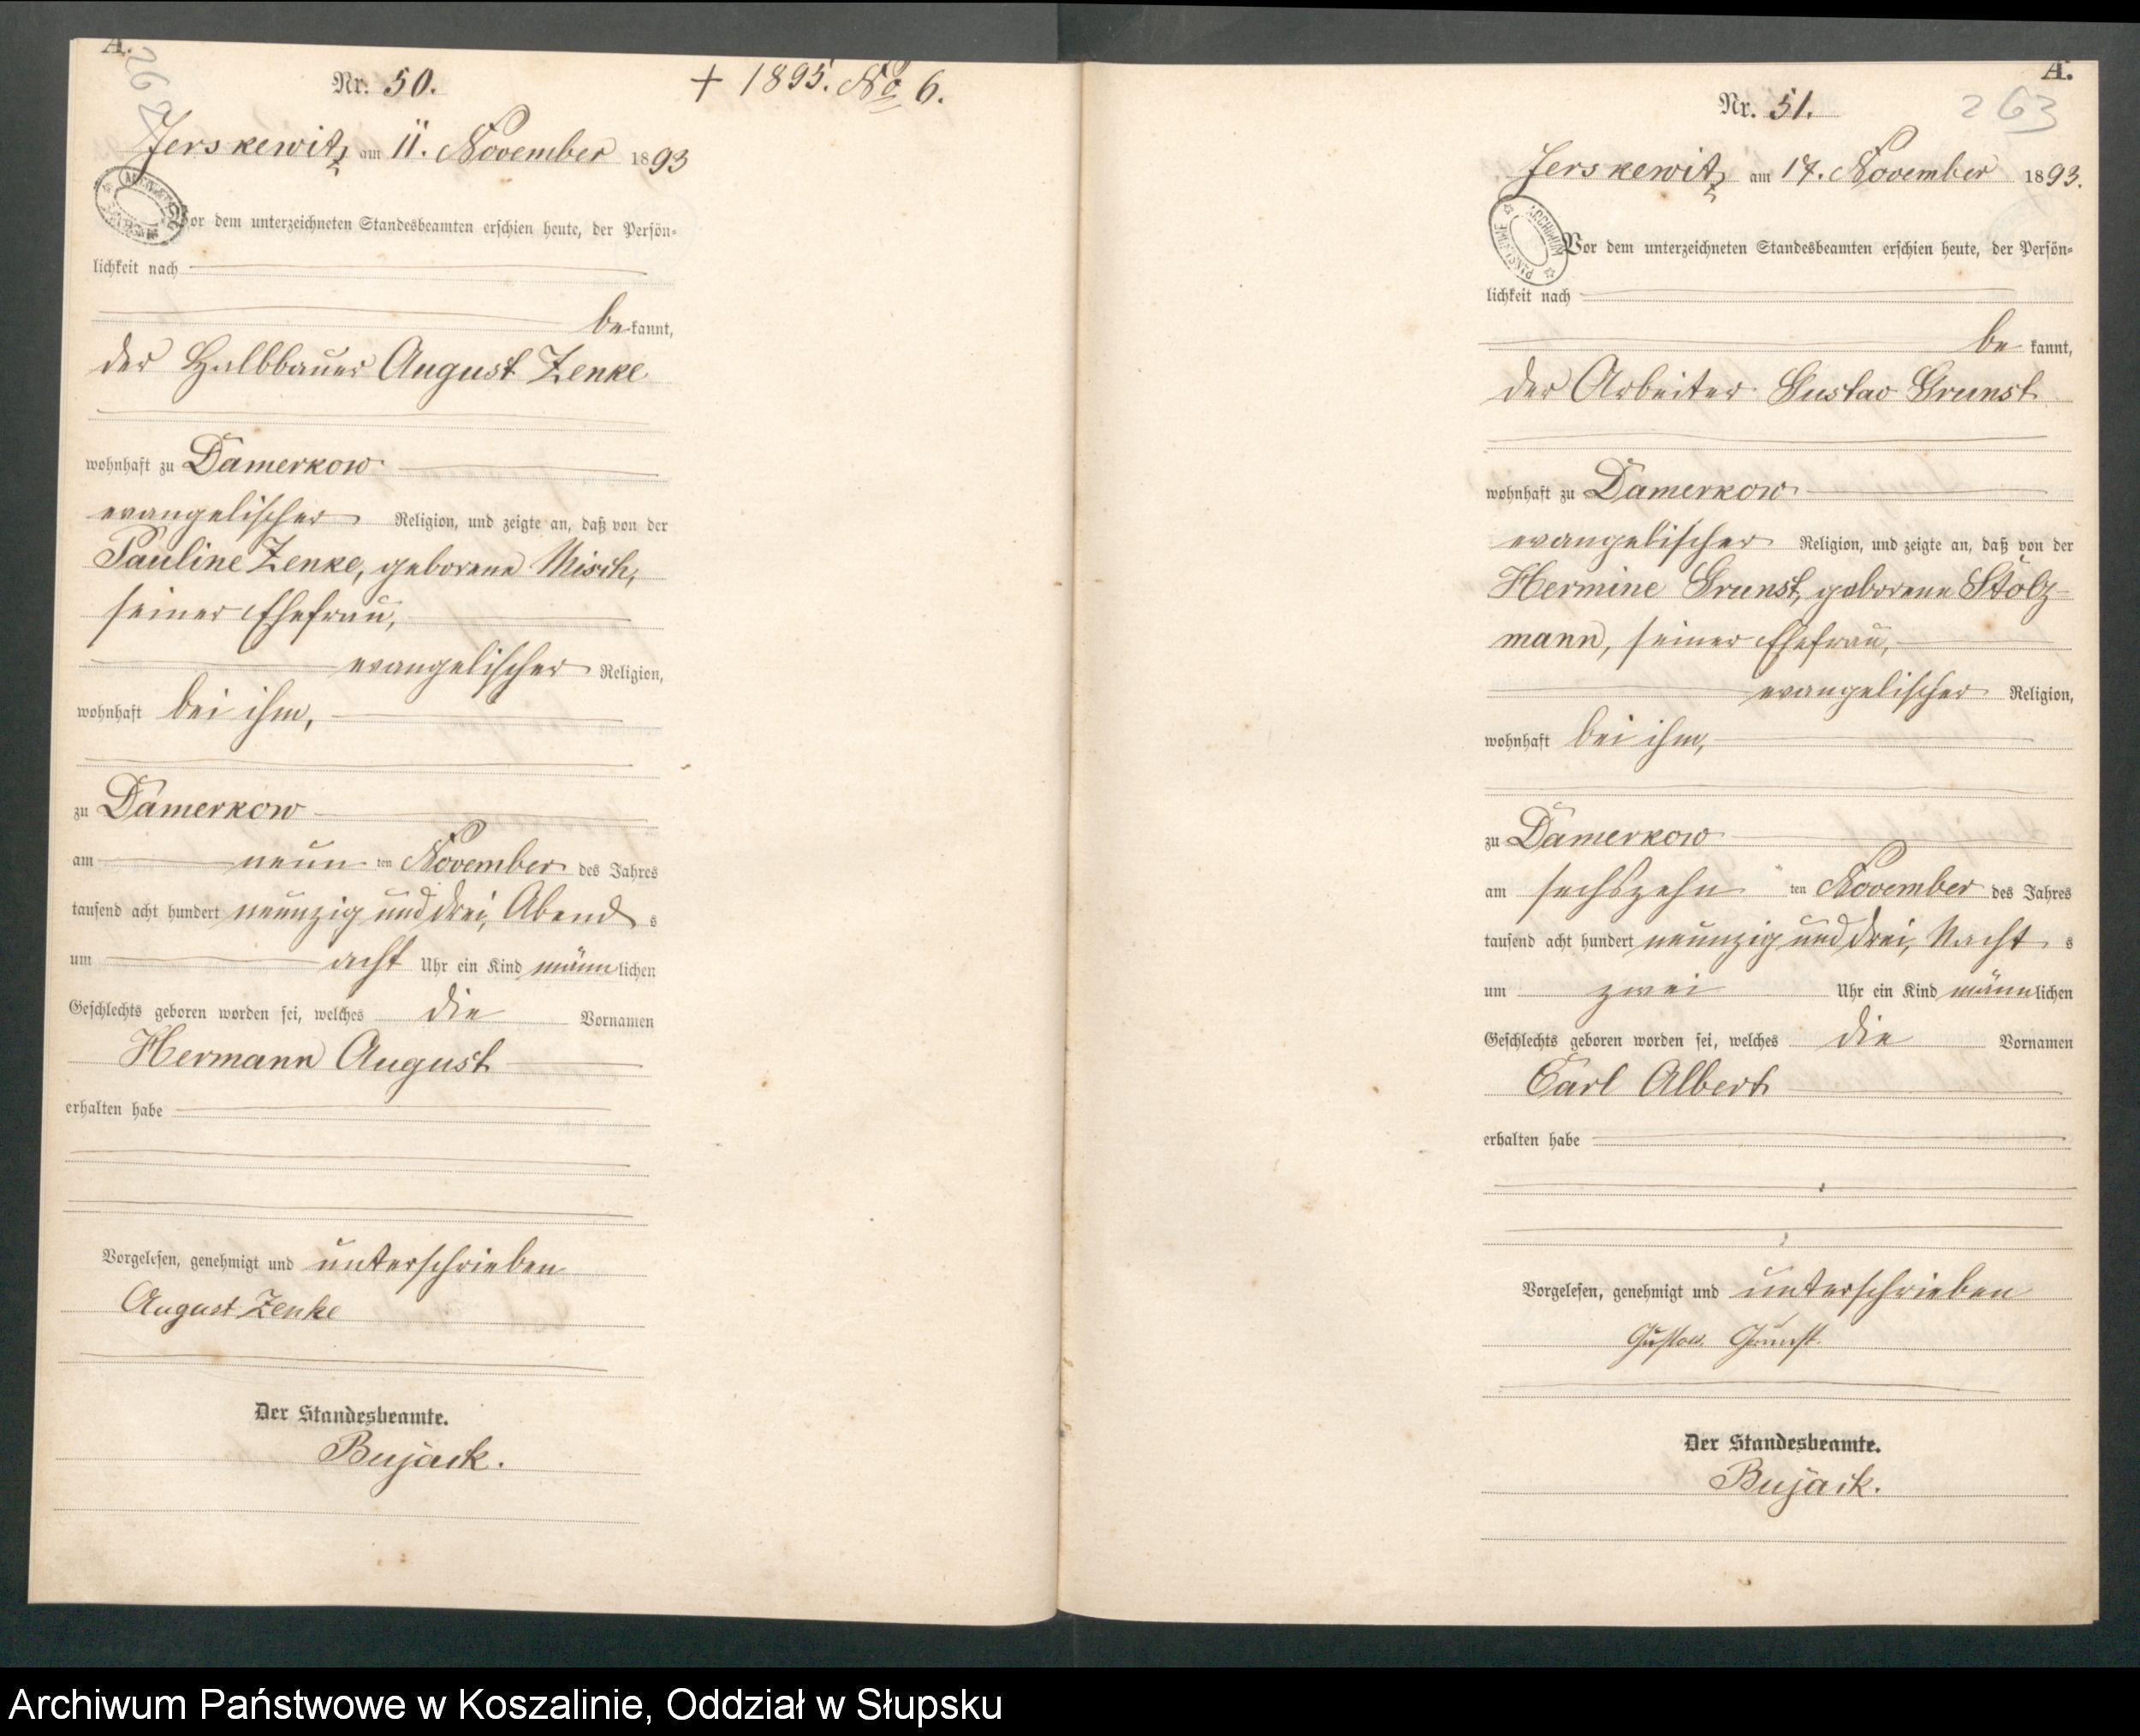 A.
262
Nr. 50.
+ 1895. No 6.
Jerskewitz am 11. November 1893
Vor dem unterzeichneten Standesbeamten erschien heute, der Persön-
lichkeit nach
bekannt,
der Halbbauer August Zenke
wohnhaft zu Damerkow
evangelischer Religion, und zeigte an, daß von der
Pauline Zenke, geborene Misch,
seiner Ehefrau,
evangelischer Religion,
wohnhaft bei ihm,
zu Damerkow
am neun ten November des Jahres
tausend acht hundert neunzig und drei, Abends
um acht Uhr ein Kind männlichen
Geschlechts geboren worden sei, welches die Vornamen
Hermann August
erhalten habe
Vorgelesen, genehmigt und unterschrieben
August Zenke
Der Standesbeamte.
Bujack.
A.
263
Nr. 51.
Jerskewitz am 17. November 1893.
ARCHIWUM PAŃSTWOWE
Vor dem unterzeichneten Standesbeamten erschien heute, der Persön-
lichkeit nach
bekannt,
der Arbeiter Gustav Grunst
wohnhaft zu Damerkow
evangelischer Religion, und zeigte an, daß von der
Hermine Grunst, geborene Stolz-
mann, seiner Ehefrau,
evangelischer Religion,
wohnhaft bei ihm,
zu Damerkow
am sechszehn ten November des Jahres
tausend acht hundert neunzig und drei, Nachts
um zwei Uhr ein Kind männlichen
Geschlechts geboren worden sei, welches die Vornamen
Carl Albert
erhalten habe
Vorgelesen, genehmigt und unterschrieben
Gustav Grunst.
Der Standesbeamte.
Bujack.
Archiwum Państwowe w Koszalinie, Oddział w Słupsku